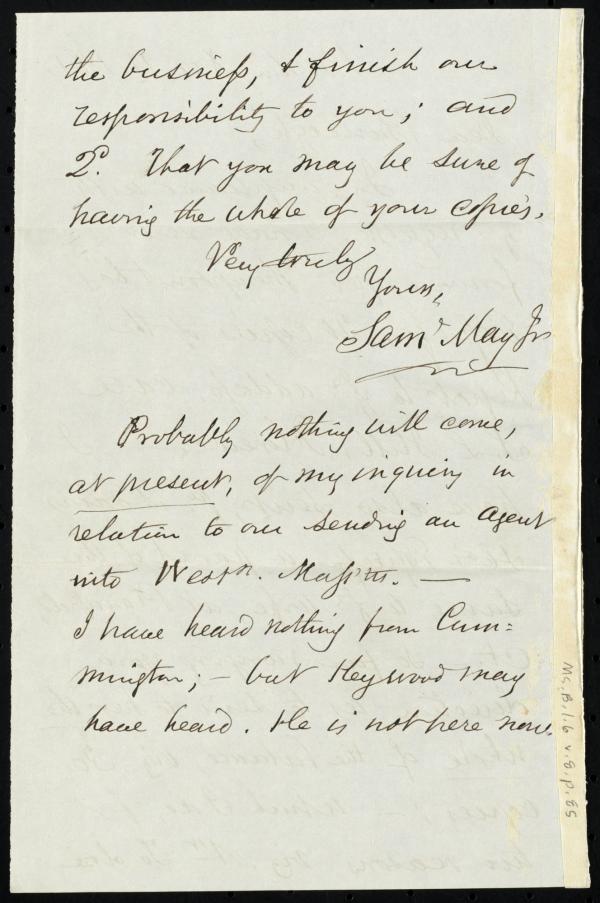 the business, & finish our
responsibility to you; and
2d. That you may be sure of
having the whole of your copies.
Very truly
Yours,
Saml. May Jr
Probably nothing will come,
at present, of my inquiry in
relation to our sending an agent
into Westn. Massts. —
I have heard nothing from Cum=
mington; — but Heywood may
have heard. He is not here now.
Ms. B. 1.6 v. 8, p. 85